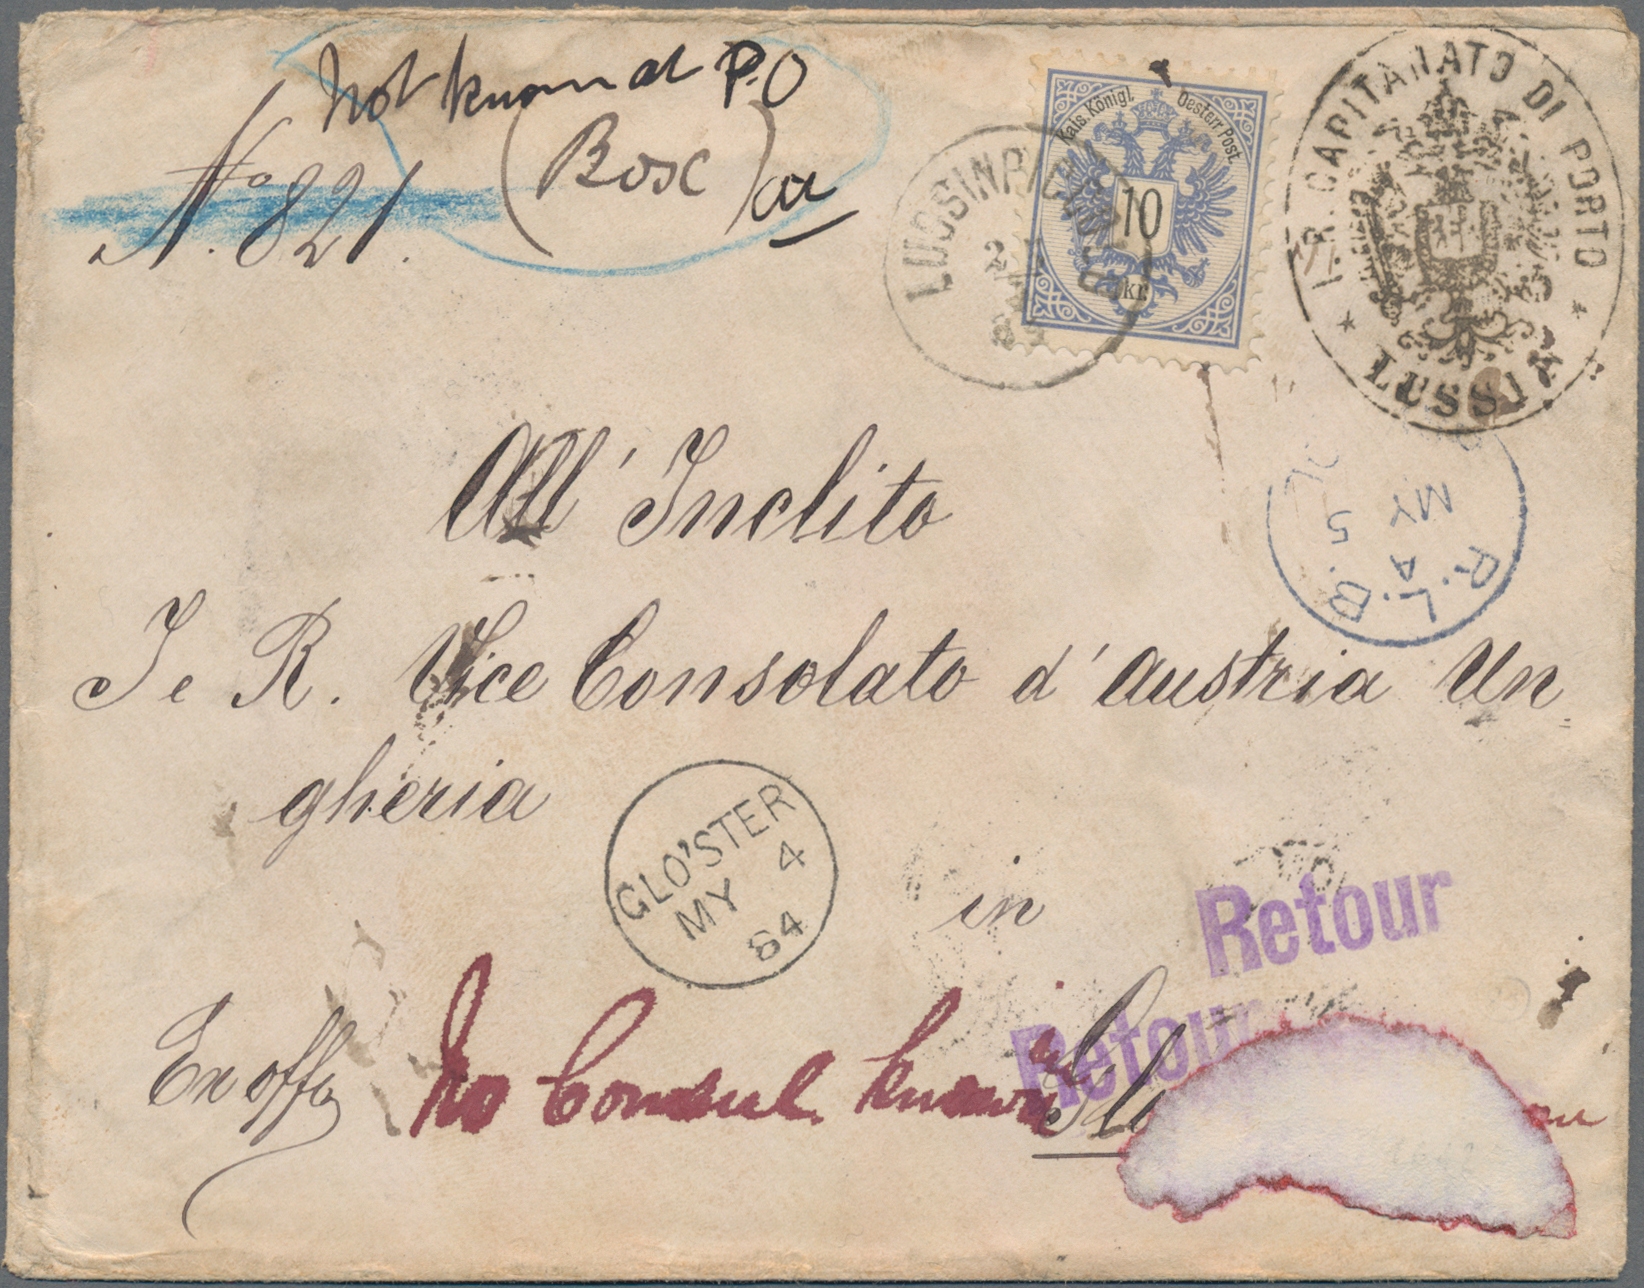 Not known at P.O
(Bosc)
No 821.
Kais. Königl. Oesterr. Post.
10
kr.
LUSSINPICCOLO
I.R. CAPITANATO DI PORTO
* LUSSIN *
R.L.B.
A
MY 5
All' Inclito
I e R. Vice Consolato d'Austria Un
gheria
GLO'STER
MY 4
84
in
Retour
Retour
Ex offo
No Consul known